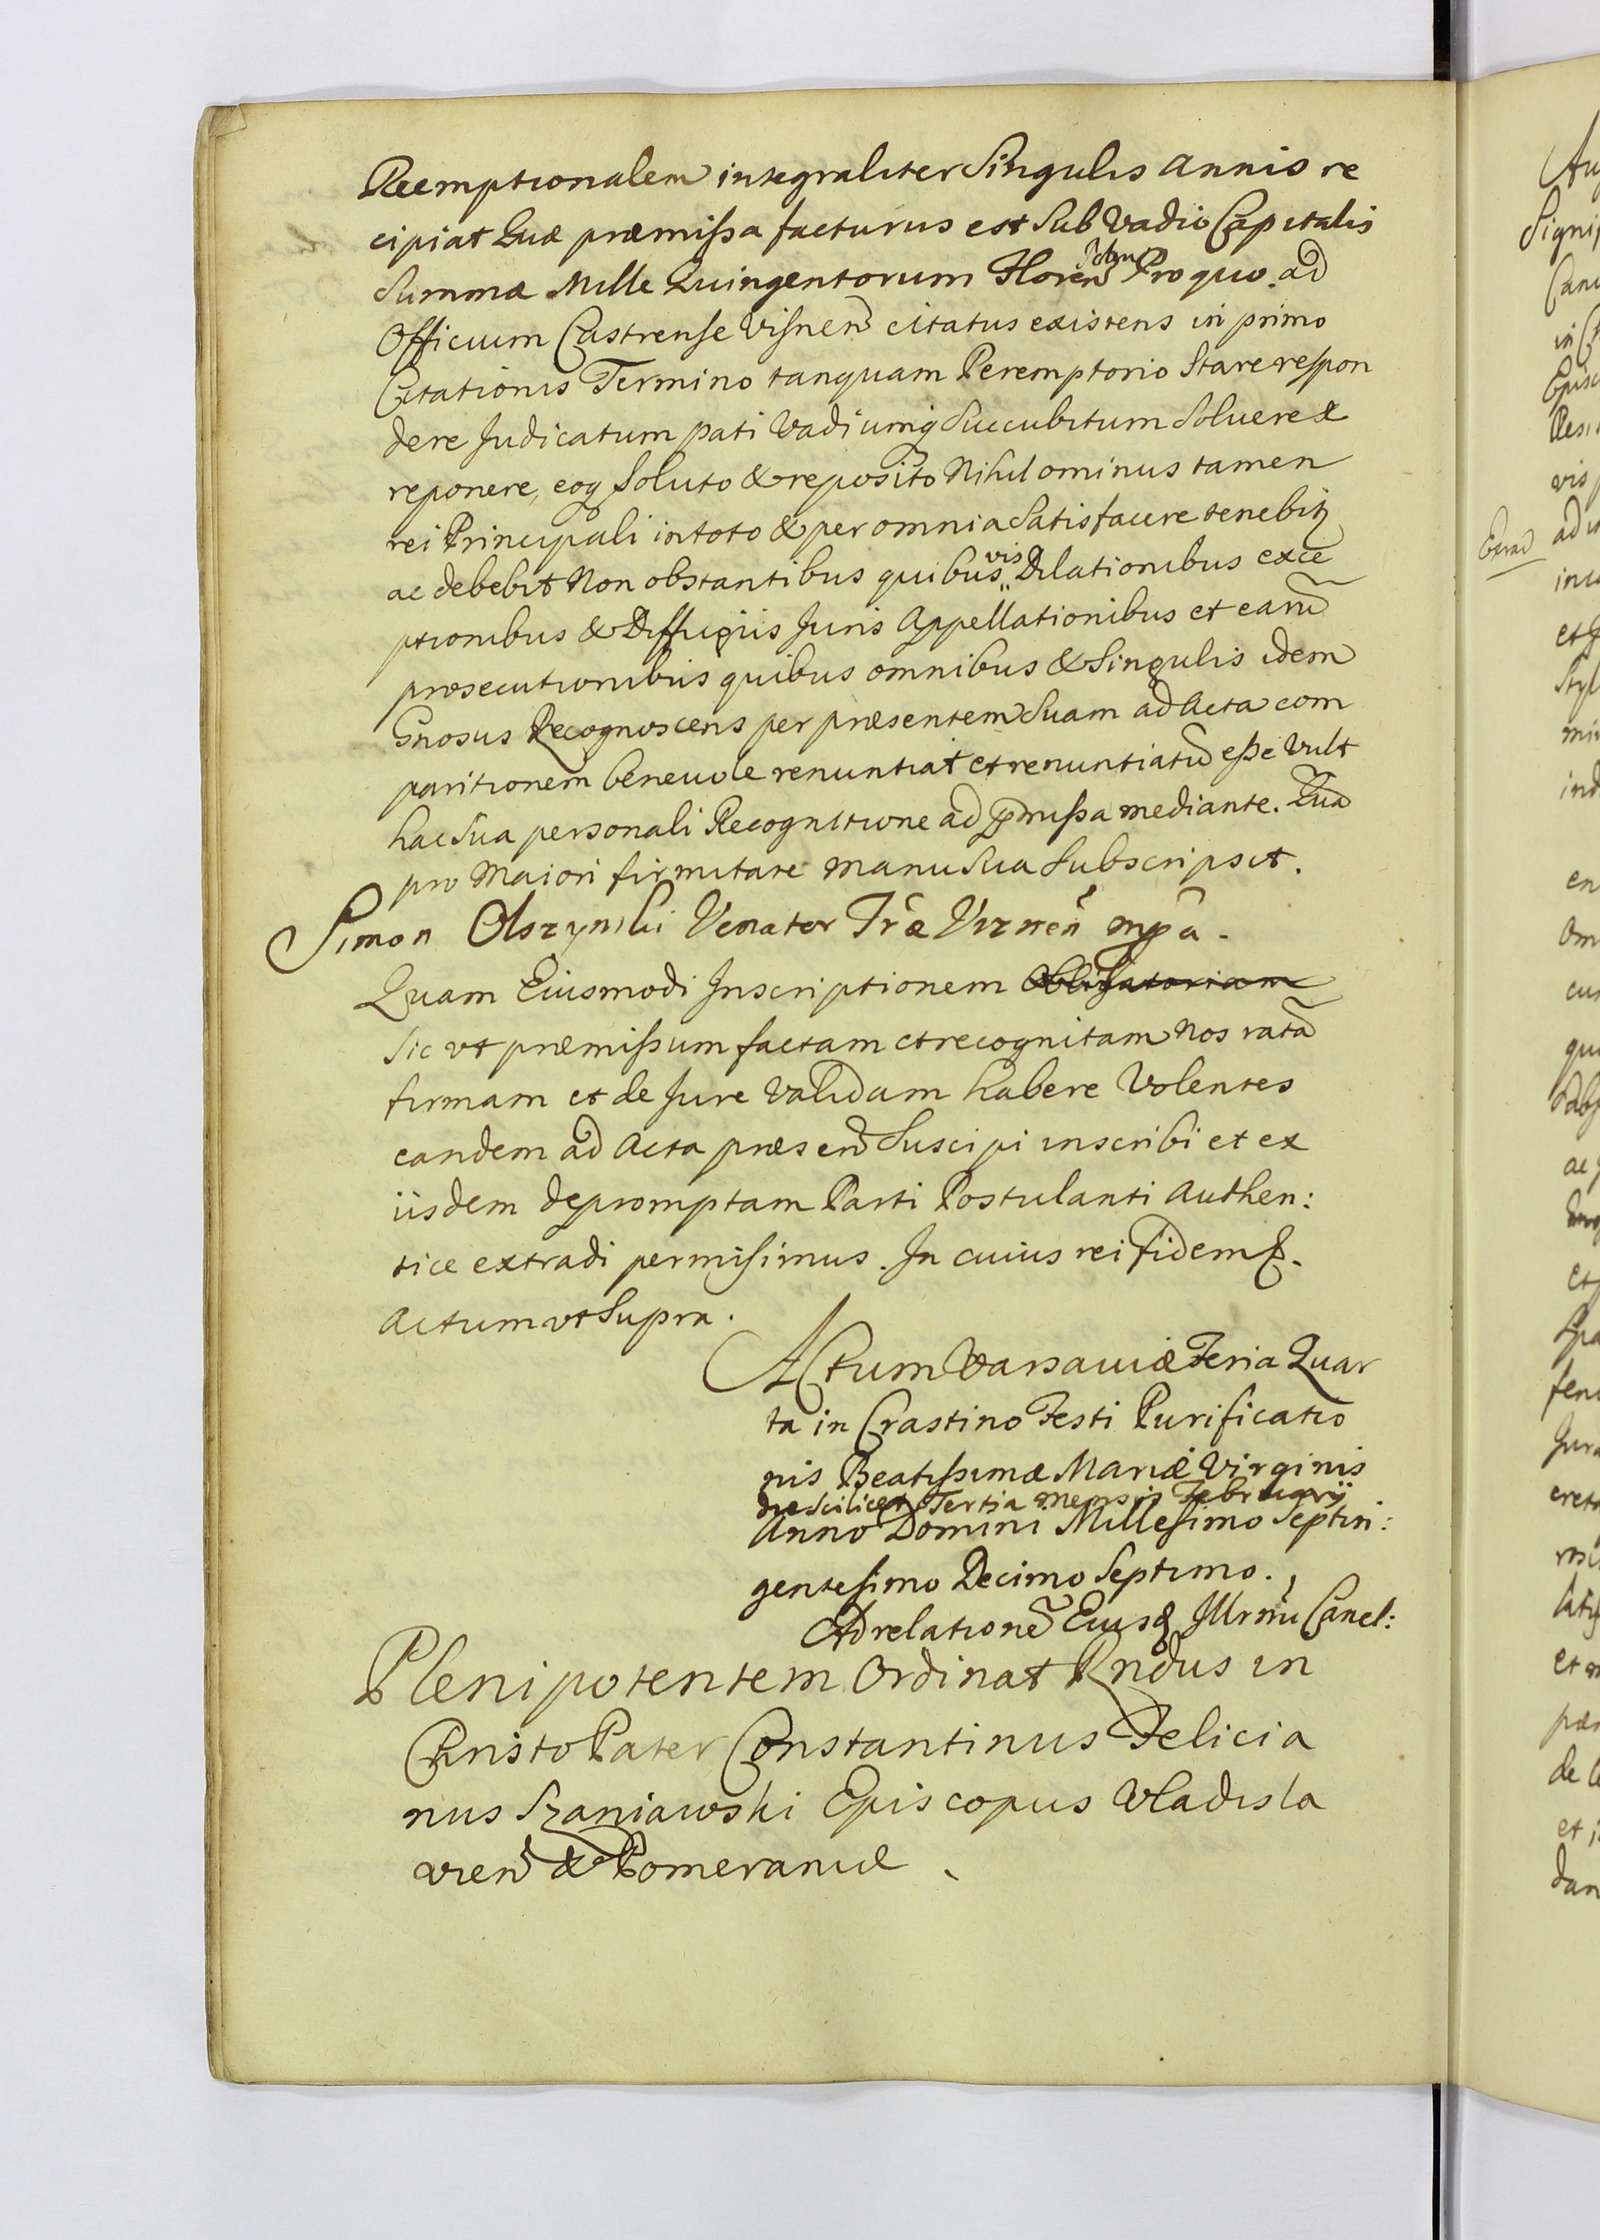 Reemptionalem integraliter Singulis Annis re
cipiat Quæ præmissa facturus est Sub Vadio Capitalis
Summæ Mille Quingentorum Floren Pro quo ad
Officium Castrense Visnen citatus existens in primo
Citationis Termino tanquam Peremptorio Stare respon
dere Judicatum pati Vadiumq Succubitum Soluere &
reponere, eoq Soluto & reposito Nihilominus tamen
rei Principali in toto & per omnia Satisfacere tenebitz
ac debebit Non obstantibus quibusvis Dilationibus exce
ptionibus & Diffugiis Juris Appellationibus et earu
prosecutionibus quibus omnibus & Singulis idem
Gnosus Recognoscens per præsentem Suam ad Acta com
paritionem beneuole renuntiat et renuntiatu esse Vult
hac Sua personali Recognitione ad pmissa mediante. Qua
pro Maiori firmitate manu Sua Subscripsit.
Simon Olszynski Venator Træ Viznen mpa.
Quam Eiusmodi Inscriptionem Obligatoriam
Sic ut præmissum factam et recognitam Nos rata
firmam et de Jure Validam habere Volentes
eandem ad Acta præsen Suscipi inscribi et ex
iisdem depromptam Parti Postulanti Authen:
tice extradi permisimus. In cuius rei fidem &.
Actum ut Supra.
Actum Varsauiæ Feria Quar
ta in Crastino Festi Purificatio
nis Beatissimæ Mariæ Virginis
die Scilicet Tertia Mensis Februarij
Anno Domini Millesimo Septin:
gentesimo Decimo Septimo.
Ad relatione Eiusd Illrmi Cancl:
Plenipotentem Ordinat Rndus in
Christo Pater Constantinus Felicia
nus Szaniawski Episcopus Vladisla
vien & Pomeraniæ